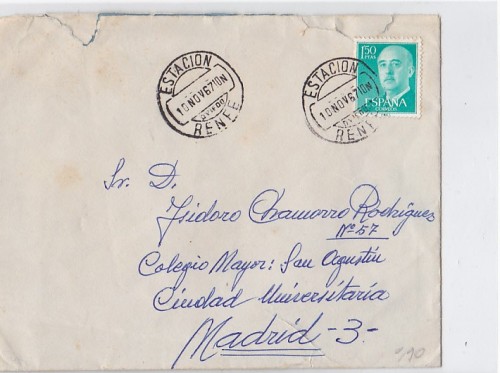 ESTACION
10NOV67 10N
OVIEDO
RENFE
ESTACION
10NOV67 10N
OVIEDO
RENFE
1'50
PTAS
ESPAÑA
CORREOS
Sr. D.
Isidoro Chamorro Rodríguez
Nº-57
Colegio Mayor: San Agustín
Ciudad Universitaria
Madrid -3-